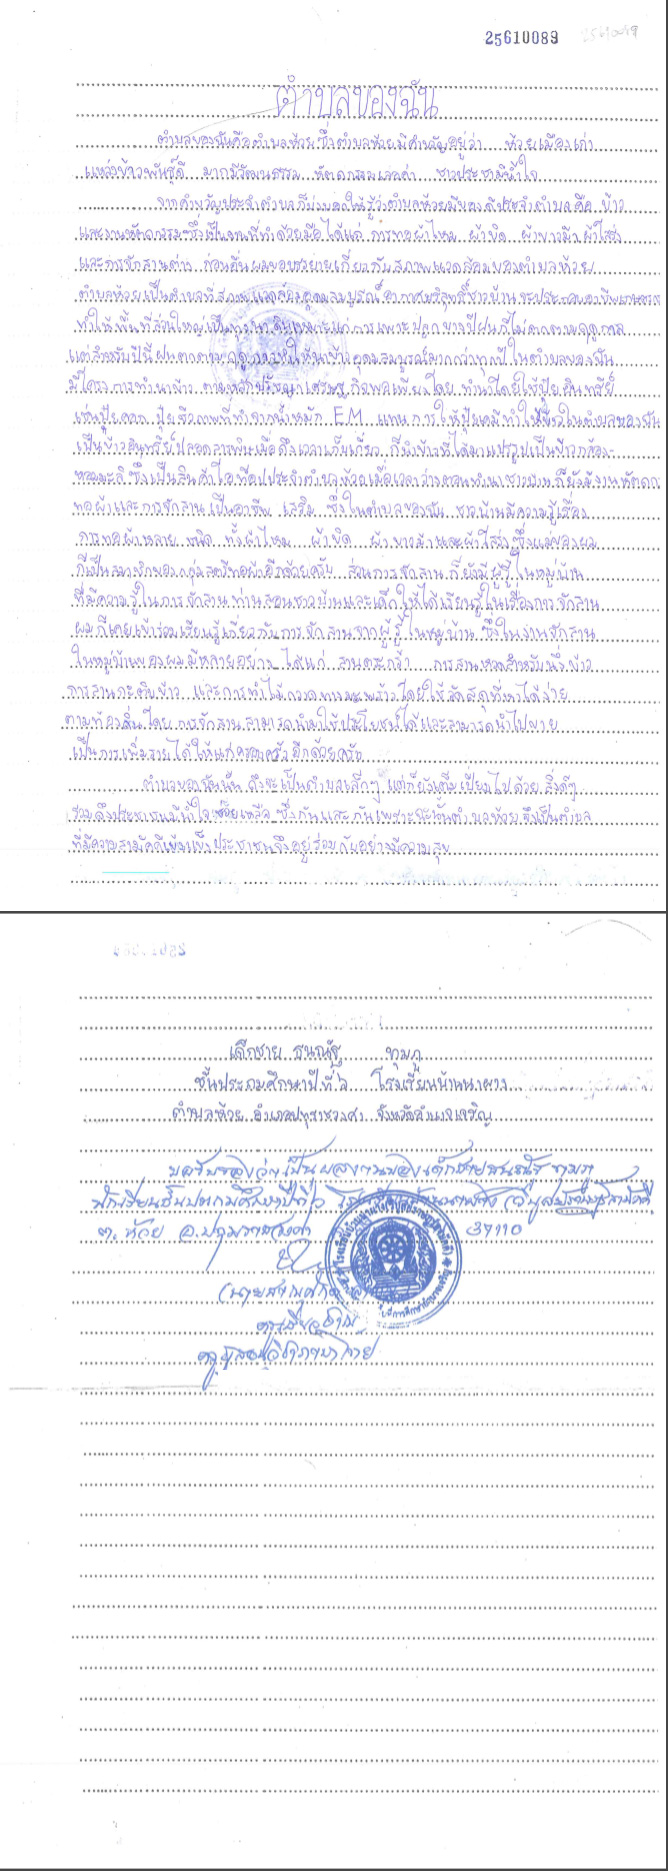 25610089
ตำบลของฉัน
ตำบลของฉันคือตำบลห้วย ซึ่งตำบลห้วยมีคำขวัญอยู่ว่า ห้วยเมืองเก่า
แหล่งข้าวพันธุ์ดี มากมีวัฒนธรรม หัตถกรรมเลอค่า ชาวประชามีน้ำใจ
จากคำขวัญประจำตำบลก็บ่งบอกให้รู้ว่าตำบลห้วยมีของดีประจำตำบลคือ ข้าว
และงานหัตถกรรมซึ่งเป็นงานที่ทำด้วยมือได้แก่ การทอผ้าไหม ผ้าขิด ผ้าขาวม้า ผ้าโสร่ง
และการจักสานต่างๆ ก่อนอื่นผมขอขยายเกี่ยวกับสภาพแวดล้อมของตำบลห้วย
ตำบลห้วยเป็นตำบลที่สภาพแวดล้อมอุดมสมบูรณ์ อากาศบริสุทธิ์ ชาวบ้านจะประกอบอาชีพเกษตรกร
ทำให้พื้นที่ส่วนใหญ่เป็นทุ่งนา ดินเหมาะแก่การเพาะปลูก บางปีฝนก็ไม่ตกตามฤดูกาล
แต่สำหรับปีนี้ฝนตกตามฤดูกาลทำให้นาข้าวอุดมสมบูรณ์มากกว่าทุกปี ในตำบลของฉัน
มีโครงการทำนาข้าว ตามหลักปรัชญาเศรษฐกิจพอเพียงโดย ทำนาโดยใช้ปุ๋ยอินทรีย์
เช่นปุ๋ยคอก ปุ๋ยชีวภาพที่ทำจากน้ำหมัก EM แทนการใช้ปุ๋ยเคมีทำให้ข้าวในตำบลของฉัน
เป็นข้าวอินทรีย์ปลอดสารพิษเมื่อถึงเวลาเก็บเกี่ยว ก็นำข้าวที่ได้มาแปรรูปเป็นข้าวกล้อง
หอมมะลิ ซึ่งเป็นสินค้าโอท็อปประจำตำบลห้วยเมื่อเวลาว่างจากทำนา ชาวบ้านก็ยังมีงานหัตถกรรม
ทอผ้าและการจักสานเป็นอาชีพ เสริม ซึ่งในตำบลของฉัน ชาวบ้านมีความรู้เรื่อง
การทอผ้าหลาย ชนิด ทั้งผ้าไหม ผ้าขิด ผ้าขาวม้าและผ้าโสร่ง ซึ่งแม่ของผม
ก็เป็นสมาชิกของกลุ่มสตรีทอผ้าอีกด้วยครับ ส่วนการจักสาน ก็ยังมีผู้รู้ในหมู่บ้าน
ที่มีความรู้ในการจักสาน ท่านสอนชาวบ้านและเด็กๆให้ได้เรียนรู้ในเรื่องการจักสาน
ผมก็เคยเข้าร่วมเรียนรู้เกี่ยวกับการจักสานจากผู้รู้ในหมู่บ้าน ซึ่งในงานจักสาน
ในหมู่บ้านของผมมีหลายอย่าง ได้แก่ สานตะกร้า การสานหวดสำหรับนึ่งข้าว
การสานกะติบข้าว และการทำไม้กวาดทางมะพร้าว โดยใช้วัสดุที่หาได้ง่าย
ตามท้องถิ่นโดย การจักสานสามารถนำมาใช้ประโยชน์ได้และสามารถนำไปขาย
เป็นการเพิ่มรายได้ให้แก่ครอบครัวอีกด้วยครับ
ตำบลของฉันนั้น ถึงจะเป็นตำบลเล็กๆ แต่ก็ยังเต็มเปี่ยมไปด้วย สิ่งดีๆ
รวมถึงประชาชนมีน้ำใจ ช่วยเหลือ ซึ่งกันและกันเพราะฉะนั้นตำบลห้วย จึงเป็นตำบล
ที่มีความสามัคคีเข้มแข็งประชาชนจึงอยู่ร่วมกันอย่างมีความสุข
เด็กชาย ธนณัฐ ทุมภู
ชั้นประถมศึกษาปีที่ ๖ โรงเรียนบ้านนาผาง
ตำบลห้วย อำเภอปทุมราชวงศา จังหวัดอำนาจเจริญ
ขอรับรองว่าเป็นผลงานของเด็กชายธนณัฐ ทุมภู
นักเรียนชั้นประถมศึกษาปีที่ ๖
ต.ห้วย อ.ปทุมราชวงศา 37110
ครูเชี่ยวชาญ
ครูผู้สอนวิชาภาษาไทย